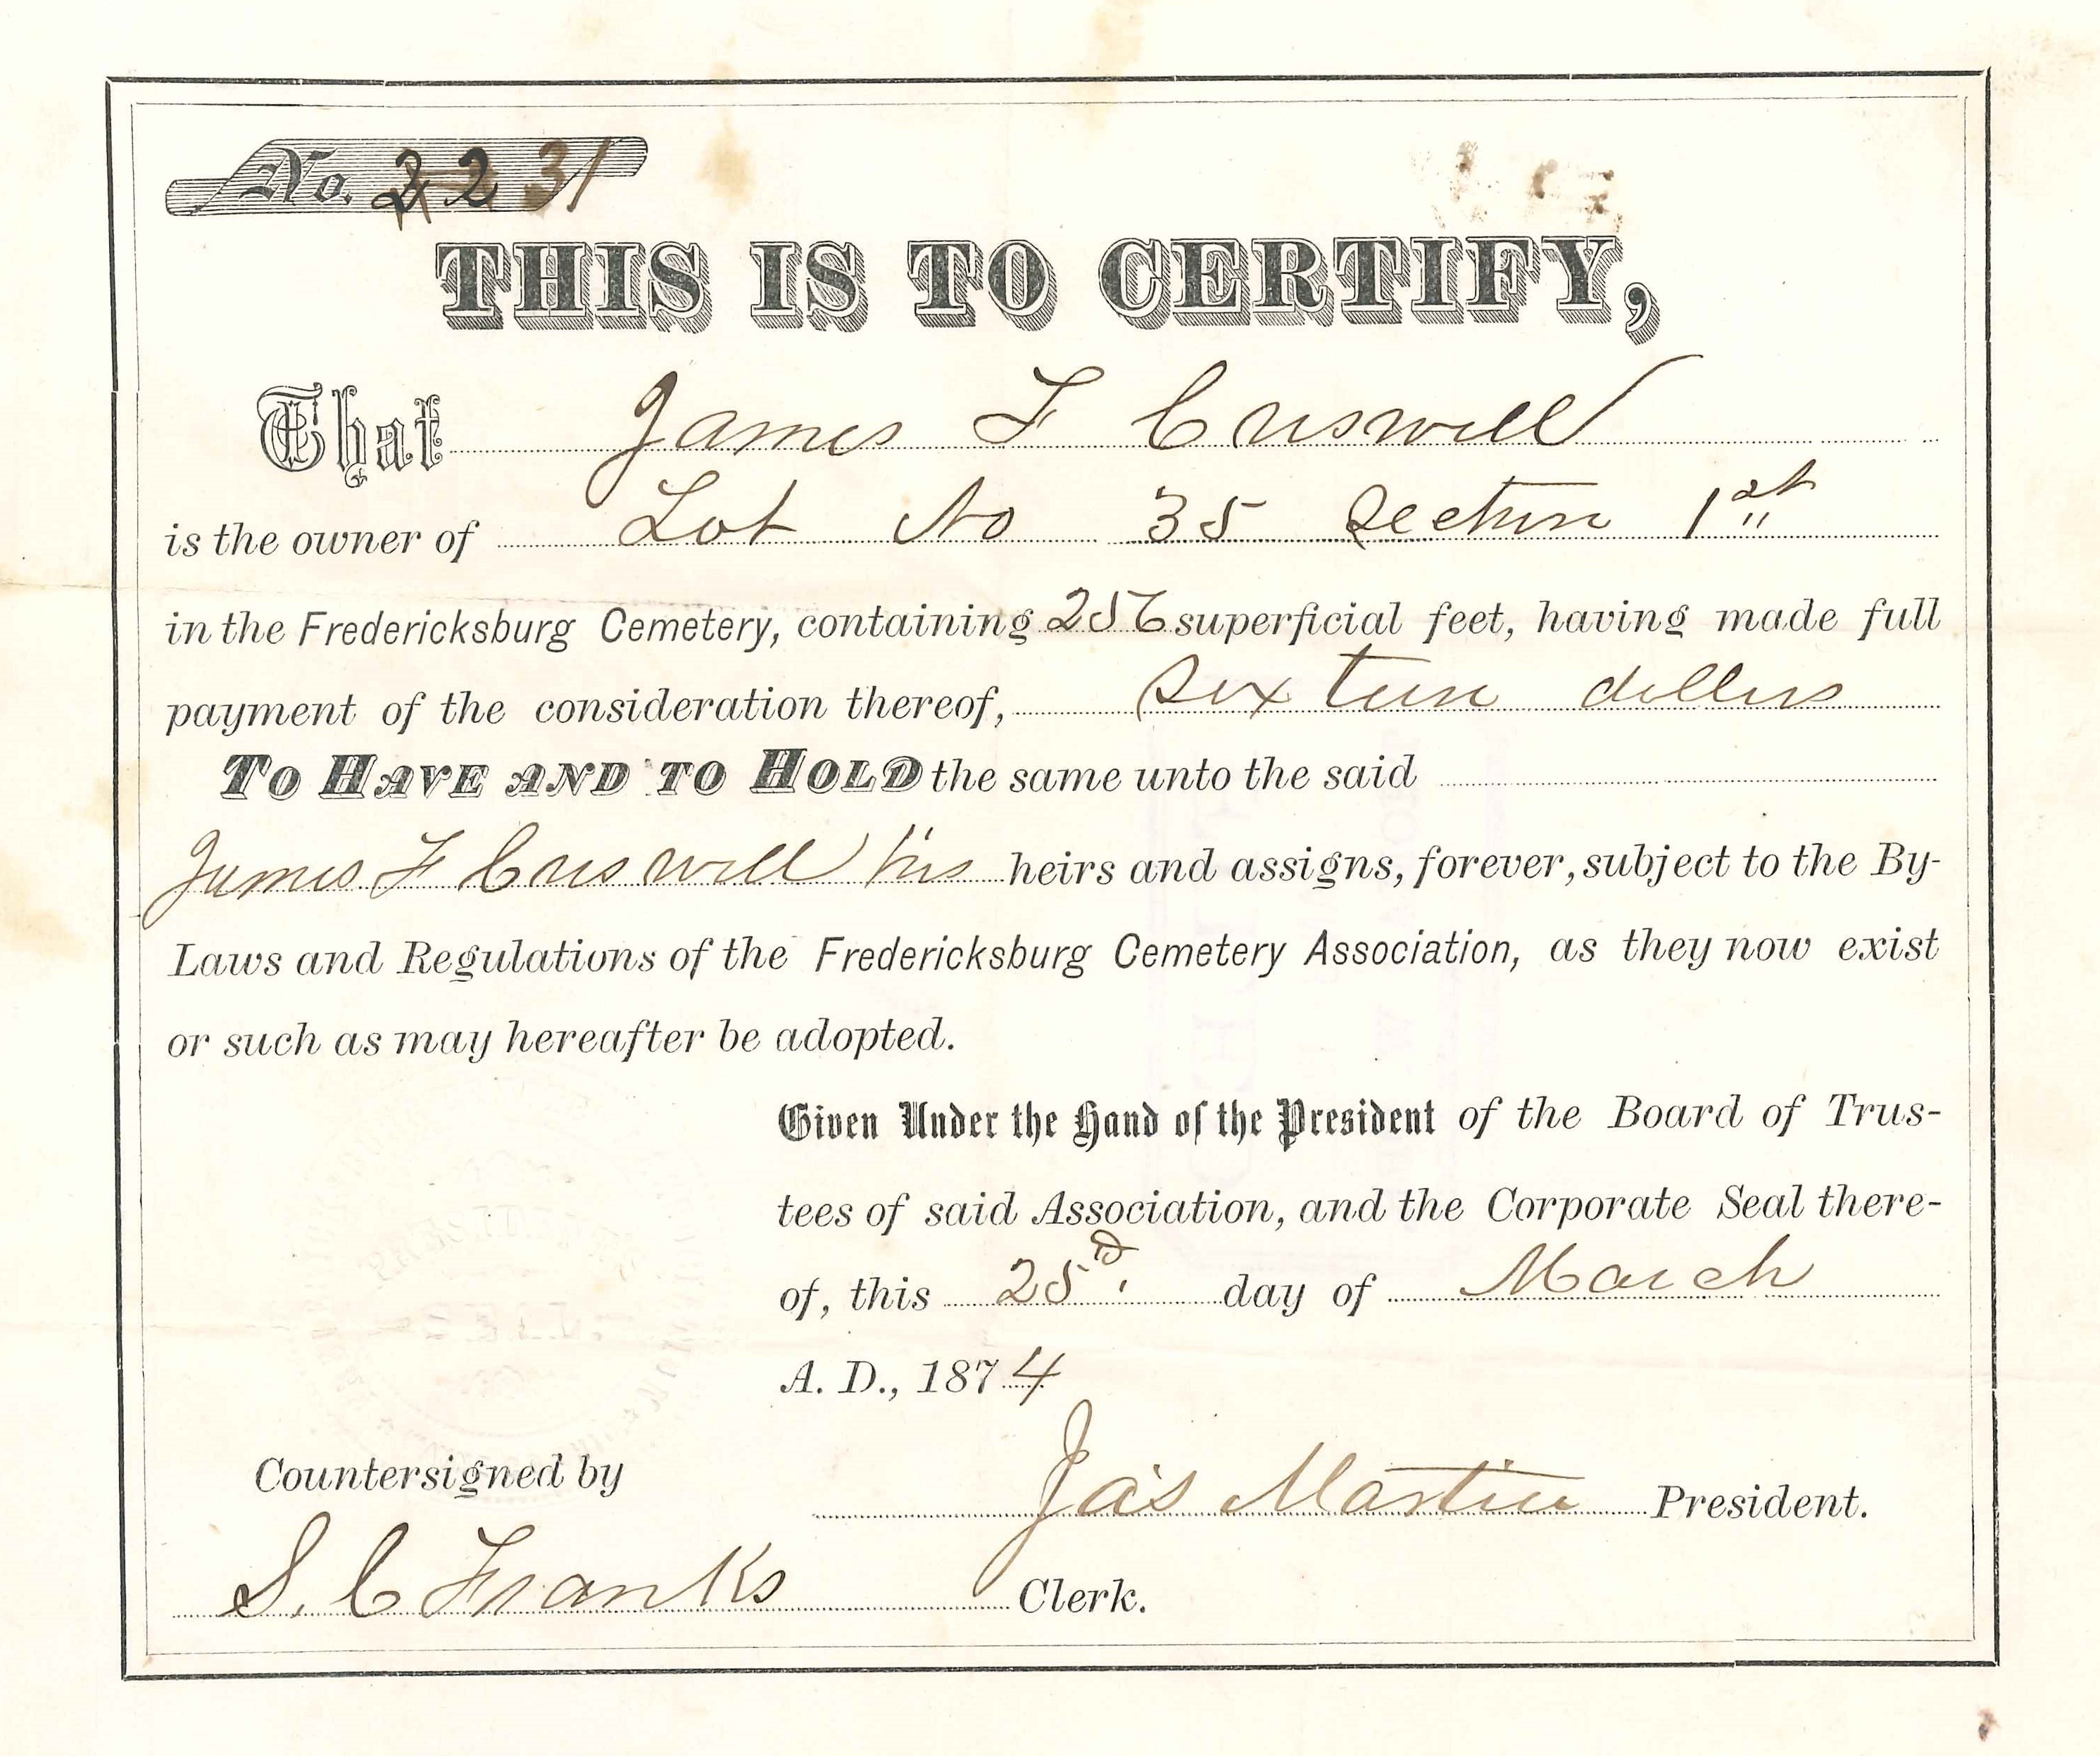 No. 22 31
THIS IS TO CERTIFY,
That James F Criswell
is the owner of Lot No 35 Section 1st
in the Fredericksburg Cemetery, containing 256 superficial feet, having made full
payment of the consideration thereof, Sixteen dollers
TO HAVE AND TO HOLD the same unto the said
James F Criswell his heirs and assigns, forever, subject to the By-
Laws and Regulations of the Fredericksburg Cemetery Association, as they now exist
or such as may hereafter be adopted.
Given Under the Hand of the President of the Board of Trus-
tees of said Association, and the Corporate Seal there-
of, this 25 day of March
A. D., 1874
Countersigned by
Jas Martin President.
S. C Franks Clerk.